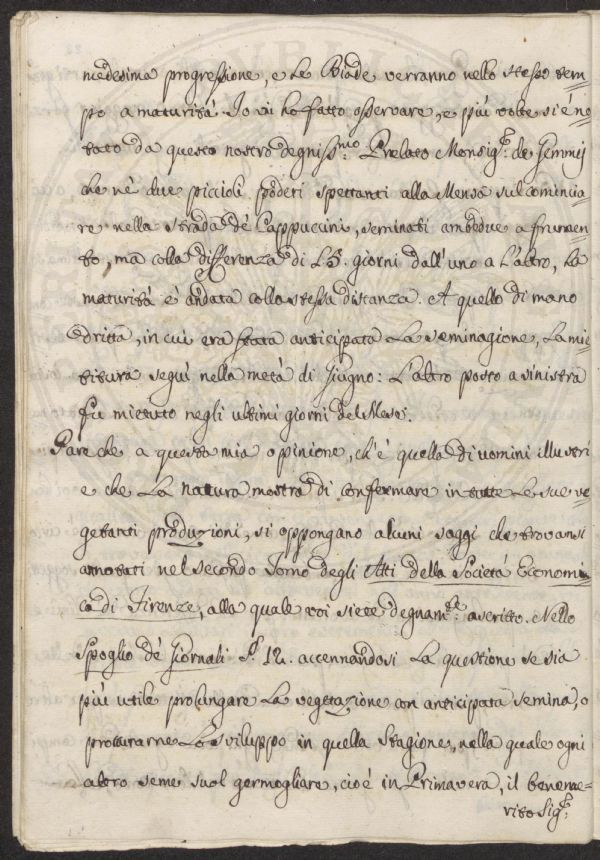 medesima progressione, e le Biade verranno nello stesso tem=
po a maturità. Io vi ho fatto osservare, e più volte si è no=
tato da questo nostro degniss:mo Prelato Monsig:r de Gemmij
che nè due piccioli poderi spettanti alla Mensa sul comincia=
re nella strada dè Cappuccini, seminati ambedue a frumen=
to, ma colla differenza di 15. giorni dall'uno a l'altro, la
maturità è andata colla stessa distanza. A quello di mano
dritta, in cui era stata anticipata la seminagione, la mie=
titura seguì nella metà di Giugno: l'altro posto a sinistra
fu mietuto negli ultimi giorni del Mese.
Pare che a questa mia opinione, ch'è quella di uomini illustri
e che la natura mostra di confermare in tutte le sue ve=
getanti produzioni, si oppongano alcuni saggi che trovansi
annotati nel secondo Tomo degli Atti della Società Economi=
ca di Firenze, alla quale voi siete degnam:te ascritto. Nello
Spoglio dè Giornali §. 12. accennandosi la questione se sia
più utile prolungare la vegetazione con anticipata semina, o
procurarne lo sviluppo in quella stagione, nella quale ogni
altro seme suol germogliare, cioè in Primavera, il beneme=
rito Sig:r